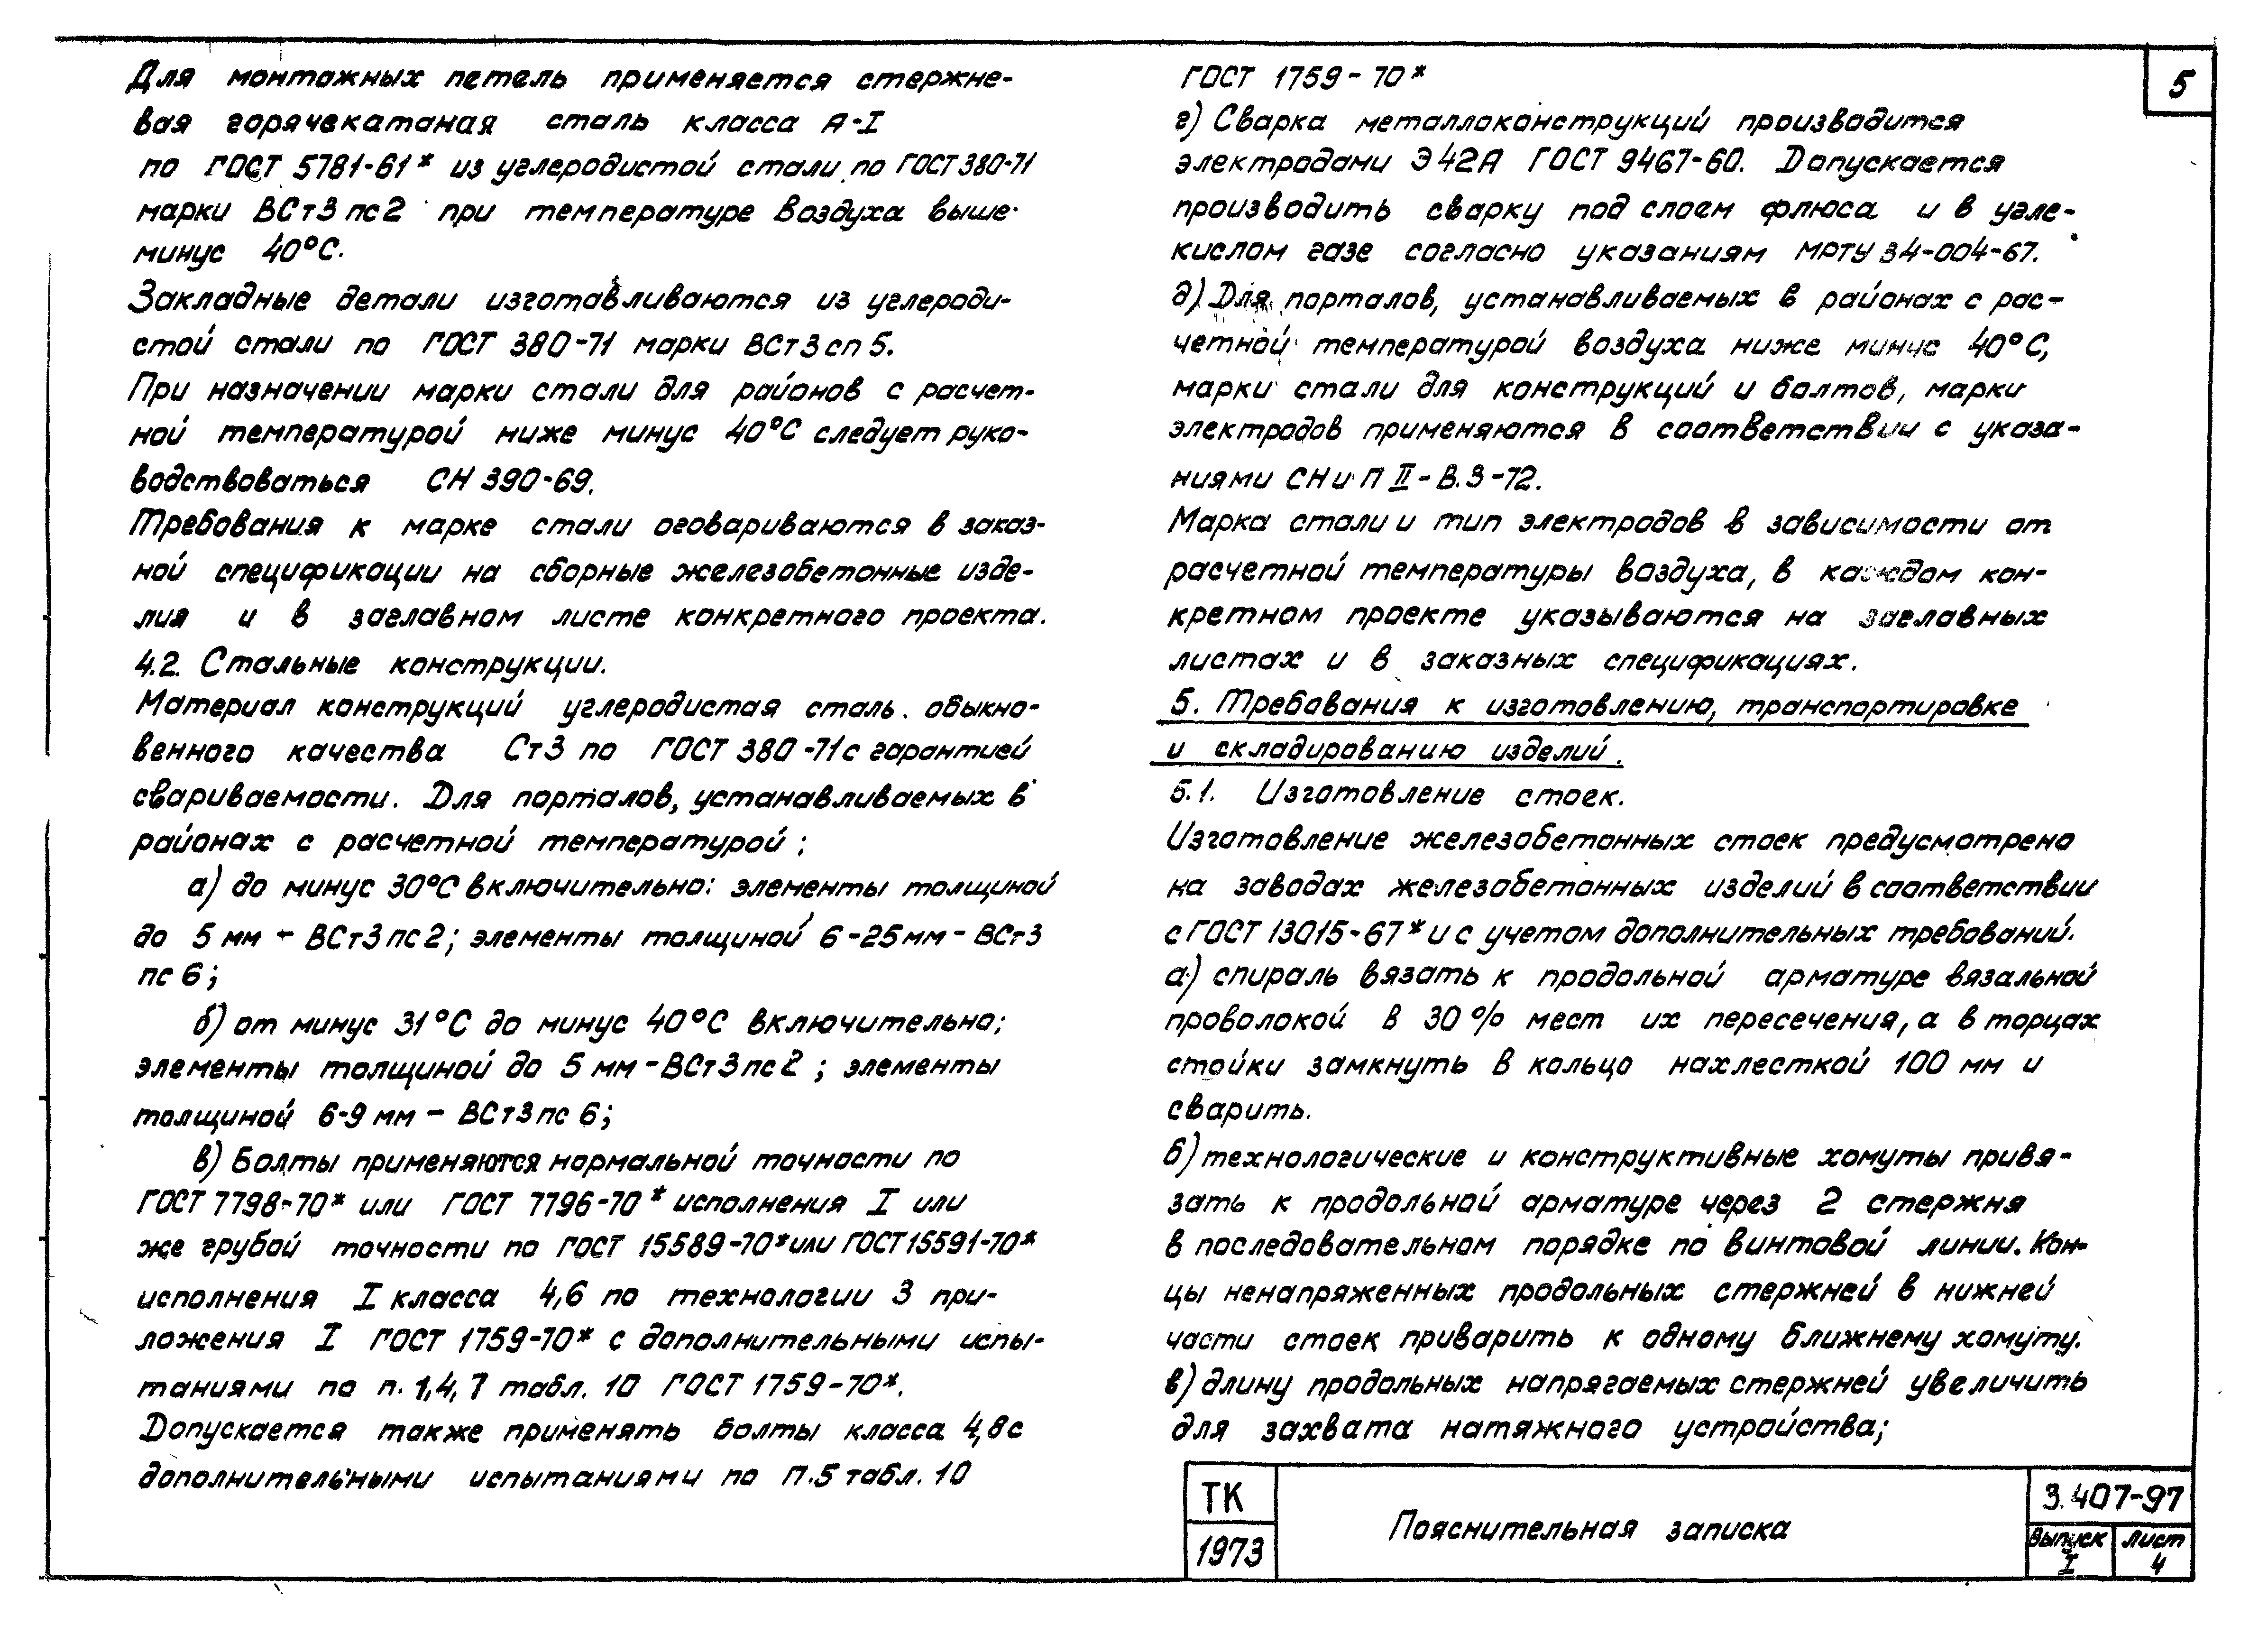 Для монтажных петель применяется стержне-
вая горячекатаная сталь класса А-I
по ГОСТ 5781-61* из углеродистой стали по ГОСТ 380-71
марки ВСт3пс2 при температуре воздуха выше
минус 40°С.
Закладные детали изготавливаются из углероди-
стой стали по ГОСТ 380-71 марки ВСт3сп5.
При назначении марки стали для районов с расчет-
ной температурой ниже минус 40°С следует руко-
водствоваться СН 390-69.
Требования к марке стали оговариваются в заказ-
ной спецификации на сборные железобетонные изде-
лия и в заглавном листе конкретного проекта.
4.2. Стальные конструкции.
Материал конструкций углеродистая сталь обыкно-
венного качества Ст3 по ГОСТ 380-71 с гарантией
свариваемости. Для порталов, устанавливаемых в
районах с расчетной температурой;
а) до минус 30°С включительно: элементы толщиной
до 5 мм - ВСт3пс2; элементы толщиной 6-25мм - ВСт3
пс6;
б) от минус 31°С до минус 40°С включительно;
элементы толщиной до 5 мм - ВСт3пс2; элементы
толщиной 6-9 мм - ВСт3пс6;
в) Болты применяются нормальной точности по
ГОСТ 7798-70* или ГОСТ 7796-70* исполнения I или
же грубой точности по ГОСТ 15589-70* или ГОСТ 15591-70*
исполнения I класса 4,6 по технологии 3 при-
ложения I ГОСТ 1759-70* с дополнительными испы-
таниями по п. 1,4,7 табл. 10 ГОСТ 1759-70*.
Допускается также применять болты класса 4,8 с
дополнительными испытаниями по п.5 табл. 10
ГОСТ 1759-70*
г) Сварка металлоконструкций производится
электродами Э42А ГОСТ 9467-60. Допускается
производить сварку под слоем флюса и в угле-
кислом газе согласно указаниям МРТУ 34-004-67.
д) Для порталов, устанавливаемых в районах с рас-
четной температурой воздуха ниже минус 40°С,
марки стали для конструкций и болтов, марки
электродов применяются в соответствии с указа-
ниями СНиП II-В.3-72.
Марка стали и тип электродов в зависимости от
расчетной температуры воздуха, в каждом кон-
кретном проекте указываются на заглавных
листах и в заказных спецификациях.
5. Требования к изготовлению, транспортировке
и складированию изделий.
5.1. Изготовление стоек.
Изготовление железобетонных стоек предусмотрено
на заводах железобетонных изделий в соответствии
с ГОСТ 13015-67* и с учетом дополнительных требований.
а) спираль вязать к продольной арматуре вязальной
проволокой в 30% мест их пересечения, а в торцах
стойки замкнуть в кольцо нахлесткой 100 мм и
сварить.
б) технологические и конструктивные хомуты привя-
зать к продольной арматуре через 2 стержня
в последовательном порядке по винтовой линии. Кон-
цы ненапряженных продольных стержней в нижней
части стоек приварить к одному ближнему хомуту.
в) длину продольных напрягаемых стержней увеличить
для захвата натяжного устройства;
5
ТК
1973
Пояснительная записка
3.407-97
Выпуск
I
Лист
4